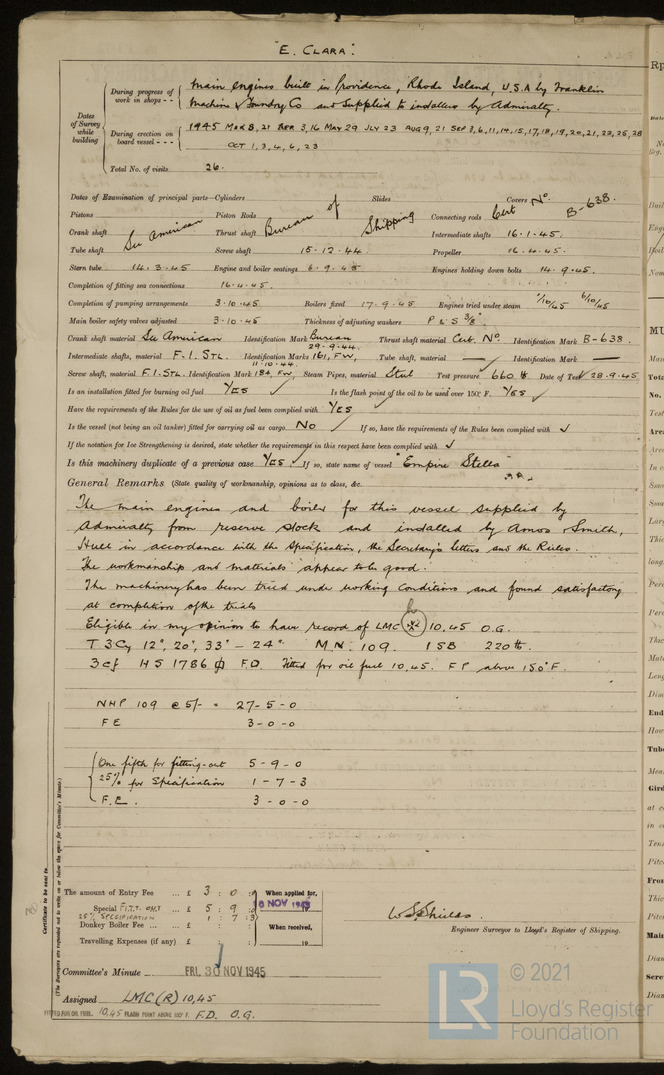 "E. CLARA".
Dates of Survey while building
During progress of work in shops - - Main engines built in Providence, Rhode Island, U.S.A by Franklin
Machine & Foundry Co and supplied to installers by Admiralty.
During erection on board vessel - - - 1945 MAR 8, 21 APR 3, 16 MAY 29 JLY 23 AUG 9, 21 SEP 3, 6, 11, 14, 15, 17, 18, 19, 20, 21, 22, 25, 28
OCT 1, 3, 4, 6, 23
Total No. of visits 26.
Dates of Examination of principal parts—Cylinders Slides Covers No.
Pistons Piston Rods Connecting rods Cert B-638.
See American Bureau of Shipping
Crank shaft Thrust shaft Intermediate shafts 16.1.45.
Tube shaft Screw shaft 15.12.44 Propeller 16.4.45.
Stern tube 14.3.45 Engine and boiler seatings 6.9.45 Engines holding down bolts 14.9.45.
Completion of fitting sea connections 16.4.45.
Completion of pumping arrangements 3.10.45 Boilers fixed 17.9.45 Engines tried under steam 1/10/45 6/10/45
Main boiler safety valves adjusted 3.10.45 Thickness of adjusting washers P & S 3/8"
Crank shaft material See American Identification Mark Bureau Thrust shaft material Cert. No. Identification Mark B-638.
29.9.44.
Intermediate shafts, material F.I.STL. Identification Marks 161, FW, Tube shaft, material — Identification Mark —
11.10.44.
Screw shaft, material F.I.STL. Identification Mark 184, FW Steam Pipes, material Steel Test pressure 660 lb Date of Test 28.9.45.
Is an installation fitted for burning oil fuel YES ✓ Is the flash point of the oil to be used over 150° F. YES ✓
Have the requirements of the Rules for the use of oil as fuel been complied with YES ✓
Is the vessel (not being an oil tanker) fitted for carrying oil as cargo. NO ✓ If so, have the requirements of the Rules been complied with ✓
If the notation for Ice Strengthening is desired, state whether the requirements in this respect have been complied with ✓
Is this machinery duplicate of a previous case YES ✓ If so, state name of vessel "Empire Stella"
General Remarks (State quality of workmanship, opinions as to class, &c.
The main engines and boiler for this vessel supplied by
Admiralty from reserve stock and installed by Amos Smith,
Hull in accordance with the specification, the Secretary's letters and the Rules.
The workmanship and materials appear to be good.
The machinery has been tried under working conditions and found satisfactory
at completion of the trials
no
Eligible in my opinion to have record of LMC 10,45 O.G.
T 3Cy 12", 20", 33" - 24" M.N. 109. 1SB 220 lb.
3cf HS 1786 ф F.D. Fitted for oil fuel 10,45. F P above 150°F.
NHP 109 @ 5/- = 27-5-0
F E 3-0-0
One fifth for fitting-out 5-9-0
25% for Specification 1-7-3
F.E. 3-0-0
Certificate to be sent to.
(The Surveyors are requested not to write on or below the space for Committee's Minute.)
The amount of Entry Fee ... £ 3 : 0 : When applied for,
Special FITT. OUT £ 5 : 9 : 0 16 NOV 1945 19
25% SPECIFICATION 1 : 7 : 3
Donkey Boiler Fee ... £ : : When received,
Travelling Expenses (if any) £ : : 19
W S Shields.
Engineer Surveyor to Lloyd's Register of Shipping.
Committee's Minute FRI. 30 NOV 1945
Assigned LMC (R) 10,45
FITTED FOR OIL FUEL. 10,45 FLASH POINT ABOVE 150° F. F.D. O.G.
© 2021
LR
Lloyd's Register
Foundation